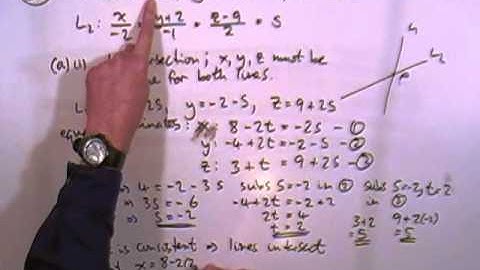 L₂: x/-2 = y+2/-1 = z-9/2 = s
(a)(i) intersection; x, y, z must be
for both lines.
2s, y=-2-s, z=9+2s
x: 8-2t=-2s -①
y: -4+2t=-2-s -②
z: 3+t=9+2s -③
4=-2-3s subs s=-2 in ② subs s=-2, t=2
⇒ 3s=-6 -4+2t=-2+2 3+2 9+2(-2)
⇒ s=-2 2t=4 =5 =5
t=2
is consistent ⇒ lines intersect
x=8-2(2
L₁
L₂
P